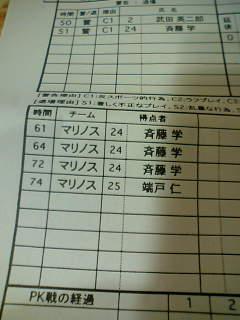 時間 警/退 理由 氏 名
50 警 C1 2 武田 英二郎
51 警 C1 24 斉藤 学
延
0
[警告理由] C1:反スポーツ的行為, C2:ラフプレイ, C3:
[退場理由] S1:著しく不正なプレイ, S2:乱暴な行為,
時間 チーム 得点者
61 マリノス 24 斉藤 学
64 マリノス 24 斉藤 学
72 マリノス 24 斉藤 学
74 マリノス 25 端戸 仁
PK戦の経過 1 2